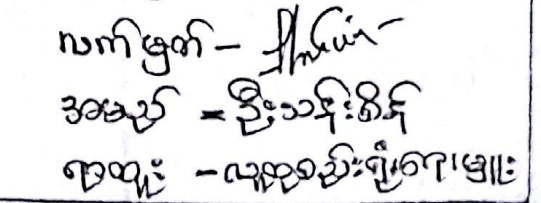 လက်မှတ် -
အမည် = ဦးသန်းစိန်
ရာထူး - လူထုစည်းရုံးရေးမှူး